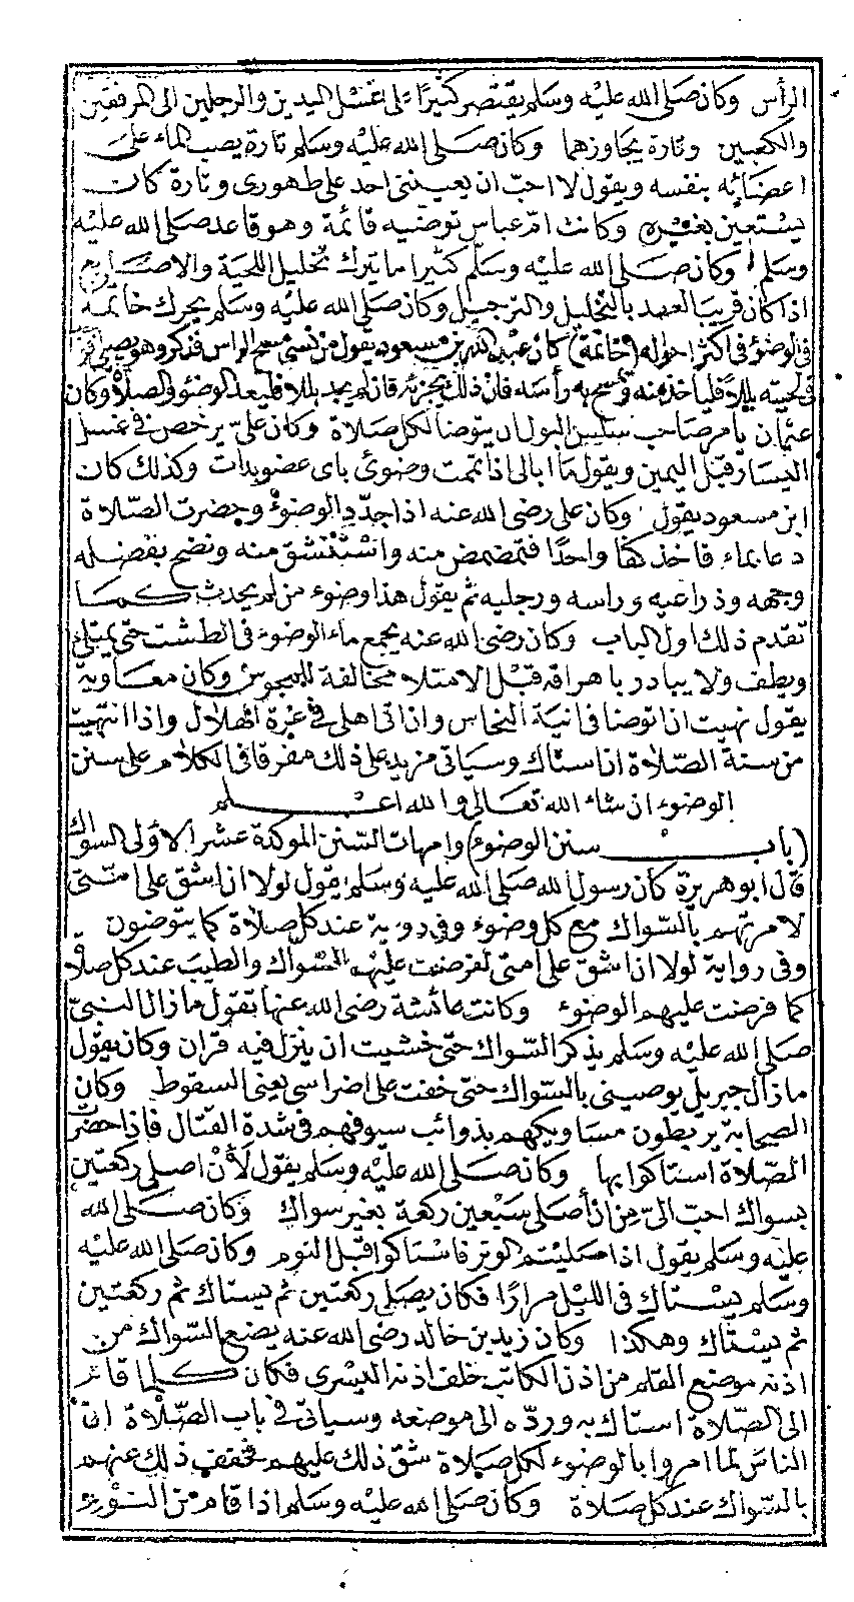 الرأس وكان صلى الله عليه وسلم يقتصر كثيرا على غسل اليدين والرجلين الى المرفقين
والكعبين وتارة يجاوزهما وكان صلى الله عليه وسلم تارة يصب الماء على
اعضائه بنفسه ويقول لا احب ان يعينني احد على طهورى وتارة كان
يستعين بغيره وكانت ام عباس توضئيه قائمة وهو قاعد صلى الله عليه
وسلم وكان صلى الله عليه وسلم كثيرا ما يترك تخليل اللحية والاصابع
اذا كان قريب العهد بالتخليل والترجيل وكان صلى الله عليه وسلم يحرك خاتمه
فى الوضوء فى اكثر احواله (خاتمة) كان عبد الله بن مسعود يقول من نسى مسح الراس فذكر وهو يصلى فوجد
فى لحيته بللا فليأخذ منه ويمسح به رأسه فان ذلك يجزئه فان لم يجد بللا فليعد الوضوء والصلاة وكان
عثمان يأمر صاحب سلس البول ان يتوضا لكل صلاة وكان على يرخص فى غسل
اليسار قبل اليمين ويقول ما ابالى اذا تممت وضوئى باى عضو بدات وكذلك كان
ابن مسعود يقول وكان على رضى الله عنه اذا جدد الوضوء وحضرت الصلاة
دعا بماء فاخذ كفا واحدا فتمضمض منه واستنشق منه ونضح بفضله
وجهه وذراعيه وراسه ورجليه ثم يقول هذا وضوء من لم يحدث كما
تقدم ذلك اول الباب وكان رضى الله عنه يجمع ماء الوضوء فى الطشت حتى يمتلئ
ويطف ولا يبادر باهراقه قبل الامتلاء مخالفة للمجوس وكان معاوية
يقول نهيت ان اتوضا فى انية النحاس وان اتى اهلى فى غرة الهلال واذا انتهيت
من سنة الصلاة ان استاك وسياتى مزيد على ذلك مفرقا فى الكلام على سنن
الوضوء ان شاء الله تعالى والله اعلم
(باب سنن الوضوء) وامهات السنن الموكدة عشر الاولى السواك
قال ابو هريرة كان رسول الله صلى الله عليه وسلم يقول لولا ان اشق على امتى
لامرتهم بالسواك مع كل وضوء وفى روية عند كل صلاة كما يتوضون
وفى رواية لولا ان اشق على امتى لفرضت عليهم السواك والطيب عند كل صلاة
كما فرضت عليهم الوضوء وكانت عائشة رضى الله عنها تقول ما زال النبى
صلى الله عليه وسلم يذكر السواك حتى خشيت ان ينزل فيه قران وكان يقول
ما زال جبريل يوصينى بالسواك حتى خفت على اضراسى يعنى السقوط وكان
الصحابة يربطون مساويكهم بذوائب سيوفهم فى شدة القتال فاذا حضرت
الصلاة استاكوا بها وكان صلى الله عليه وسلم يقول لأن اصلى ركعتين
بسواك احب الى من ان أصلى سبعين ركعة بغير سواك وكان صلى الله
عليه وسلم يقول اذا صليتم الوتر فاستاكوا قبل النوم وكان صلى الله عليه
وسلم يستاك فى الليل مرارا فكان يصلى ركعتين ثم يستاك ثم ركعتين
ثم يستاك وهكذا وكان زيد بن خالد رضى الله عنه يضع السواك من
اذنه موضع القلم من اذن الكاتب خلف اذنه اليسرى فكان كلما قام
الى الصلاة استاك به ورده الى موضعه وسياتى فى باب الصلاة ان
الناس لما امروا بالوضوء لكل صلاة شق ذلك عليهم فخفف ذلك عنهم
بالسواك عند كل صلاة وكان صلى الله عليه وسلم اذا قام من النوم